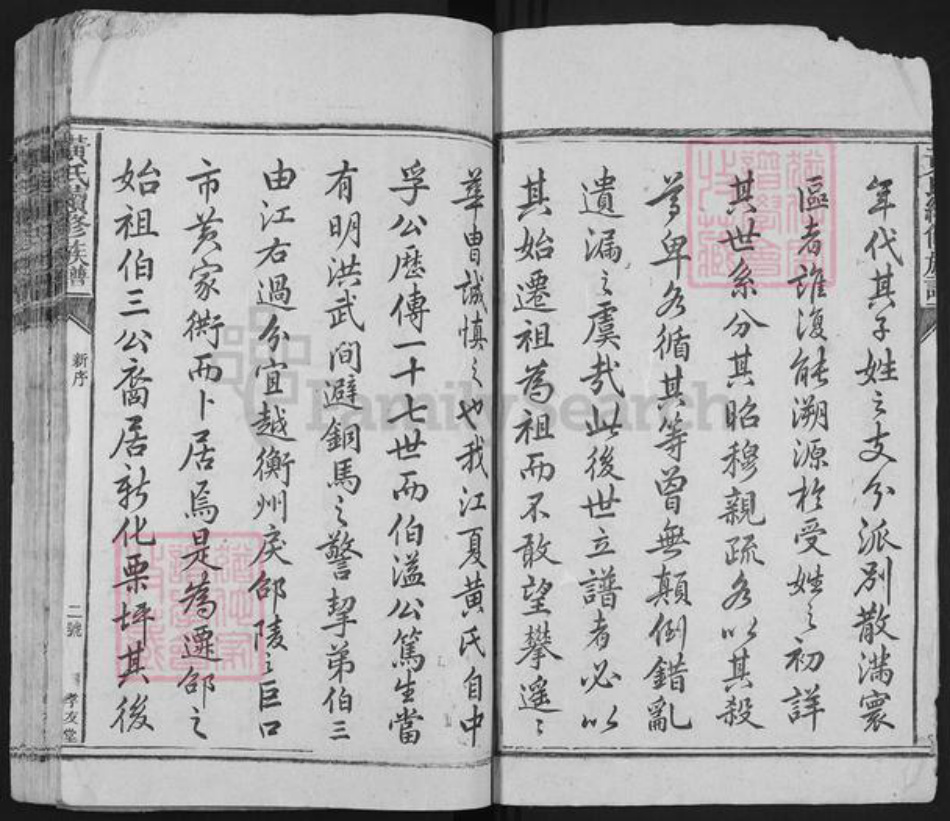 年代其子姓之支分派别散滿寰
區者誰復能溯源於受姓之初詳
其世系分其昭穆親疏各以其殺
尊卑各循其等曾無顛倒錯亂
遺漏之虞哉此後世立譜者必以
其始遷祖為祖而不敢望攀遥〻
華冑誠慎之也我江夏黄氏自中
孚公歷傳一十七世而伯溢公篤生當
有明洪武间避銅馬之警挈弟伯三
由江右過分宜越衡州戾邵陵之巨口
市黄家衖而卜居焉是為遷邵之
始祖伯三公裔居新化栗坪其後
黄氏續修族譜
新序
二號
孝友堂
FamilySearch